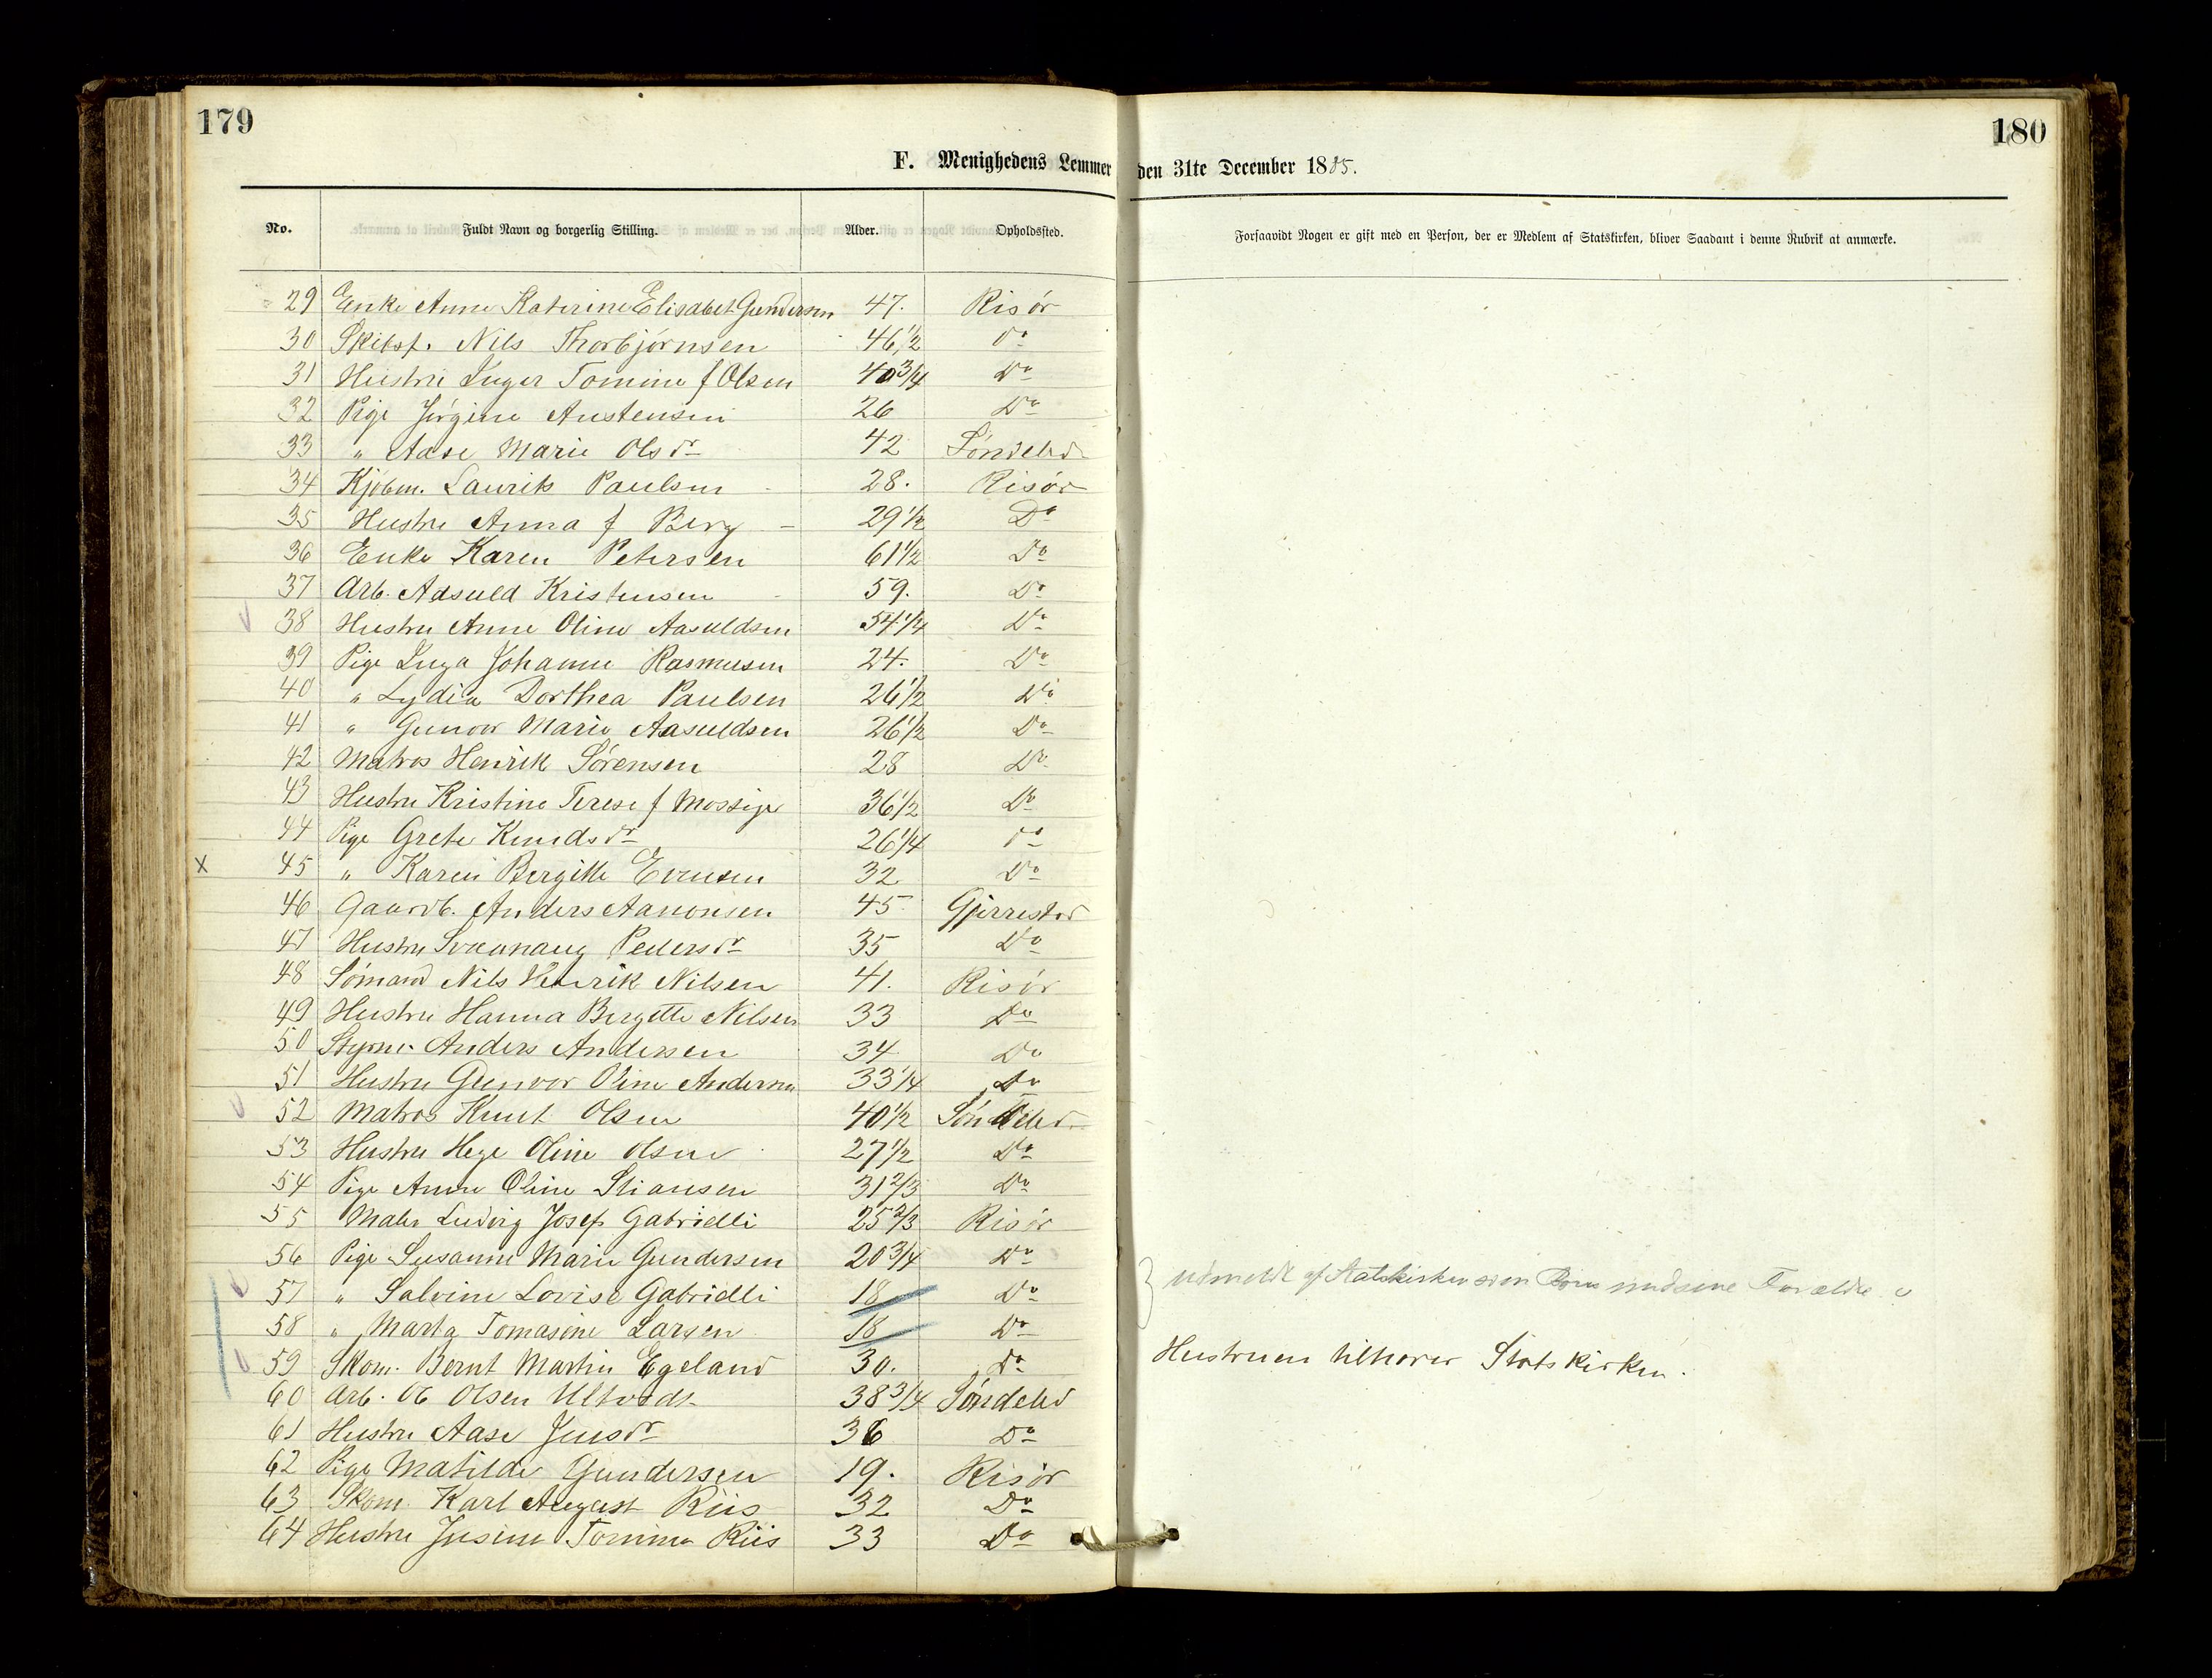 179
180
F. Menighedens Lemmer den 31te December 1885.
No. Fuldt Navn og borgerlig Stilling. Alder. Opholdssted. Forsaavidt Nogen er gift med en Person, der er Medlem af Statskirken, bliver Saadant i denne Rubrik at anmærke.
29 Enke Anne Katerine Elisabet Gundersen 47. Risør
30 Skibsf. Nils Thorbjørnsen 46 1/2 Do
31 Hustru Inger Tomine f Olsen 40 3/4 Do
32 Pige Jørgine Austensen 26 Do
33 " Aase Marie Olsdr 42 Søndeled
34 Kjøbm. Laurits Paulsen 28. Risør
35 Hustru Anna f Berg 29 1/2 Do
36 Enke Karen Petersen 61 1/2 Do
37 Arb. Adsuld Kristensen 59. Do
38 Hustru Anne Oline Aasuldsen 54 1/4 Do
39 Pige Inga Johanne Rasmusen 24. Do
40 " Lydia Dorthea Paulsen 26 1/2 Do
41 " Gunvor Marie Aasuldsen 26 1/2 Do
42 Matros Henrik Sørensen 28 Do
43 Hustru Kristine Terese f Mossige 36 1/2 Do
44 Pige Grete Knudsdr 26 1/4 Do
x 45 " Karen Bergitte Evensen 32 Do
46 Gaardb. Anders Aanonsen 45 Gjerrestad
47 Hustru Svaunaug Pedersdr 35 Do
48 Sømand Nils Henrik Nilsen 41. Risør
49 Hustru Hanna Bergitte Nilsen 33 Do
50 Styrm. Anders Andersen 34 Do
51 Hustru Gunvor Oline Andersen 33 1/4 Do
52 Matros Knut Olsen 40 1/2 Søndeled
53 Hustru Hege Oline Olsen 27 1/2 Do
54 Pige Anne Oline Stiansen 31 2/3 Do
55 Maler Ludvig Josef Gabrielli 25 2/3 Risør
56 Pige Susanne Marie Gundersen 20 3/4 Do
57 " Salvine Lovise Gabrielli 18 Do } Udmeldt af Statskirken som Børn med sine Forældre
58 " Marta Tomasine Larsen 18 Do
59 Skom. Bernt Martin Egeland 30. Do Hustruen tilhører Statskirken.
60 Arb. Ole Olsen 38 3/4 Søndeled
61 Hustru Aase Jensdr 36 Do
62 Pige Matilde Gundersen 19. Risør
63 Skom. Karl August Riis 32 Do
64 Hustru Jensine Tomine Riis 33 Do